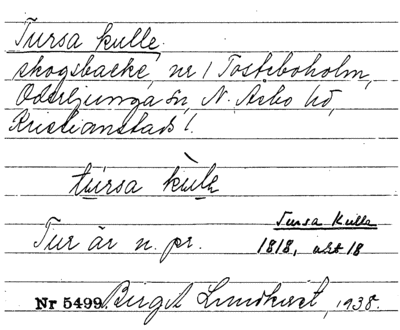 Tursa kulle
skogsbacke, nr 1 Tosteboholm,
Oderljunga sn, N. Åsbo hd,
Kristianstads l.
tùrsa kùlle
Tur är n. pr.
Tursa Kulle
1818, akt 18
Nr 5499. Birgit Lundkvist, 1938.